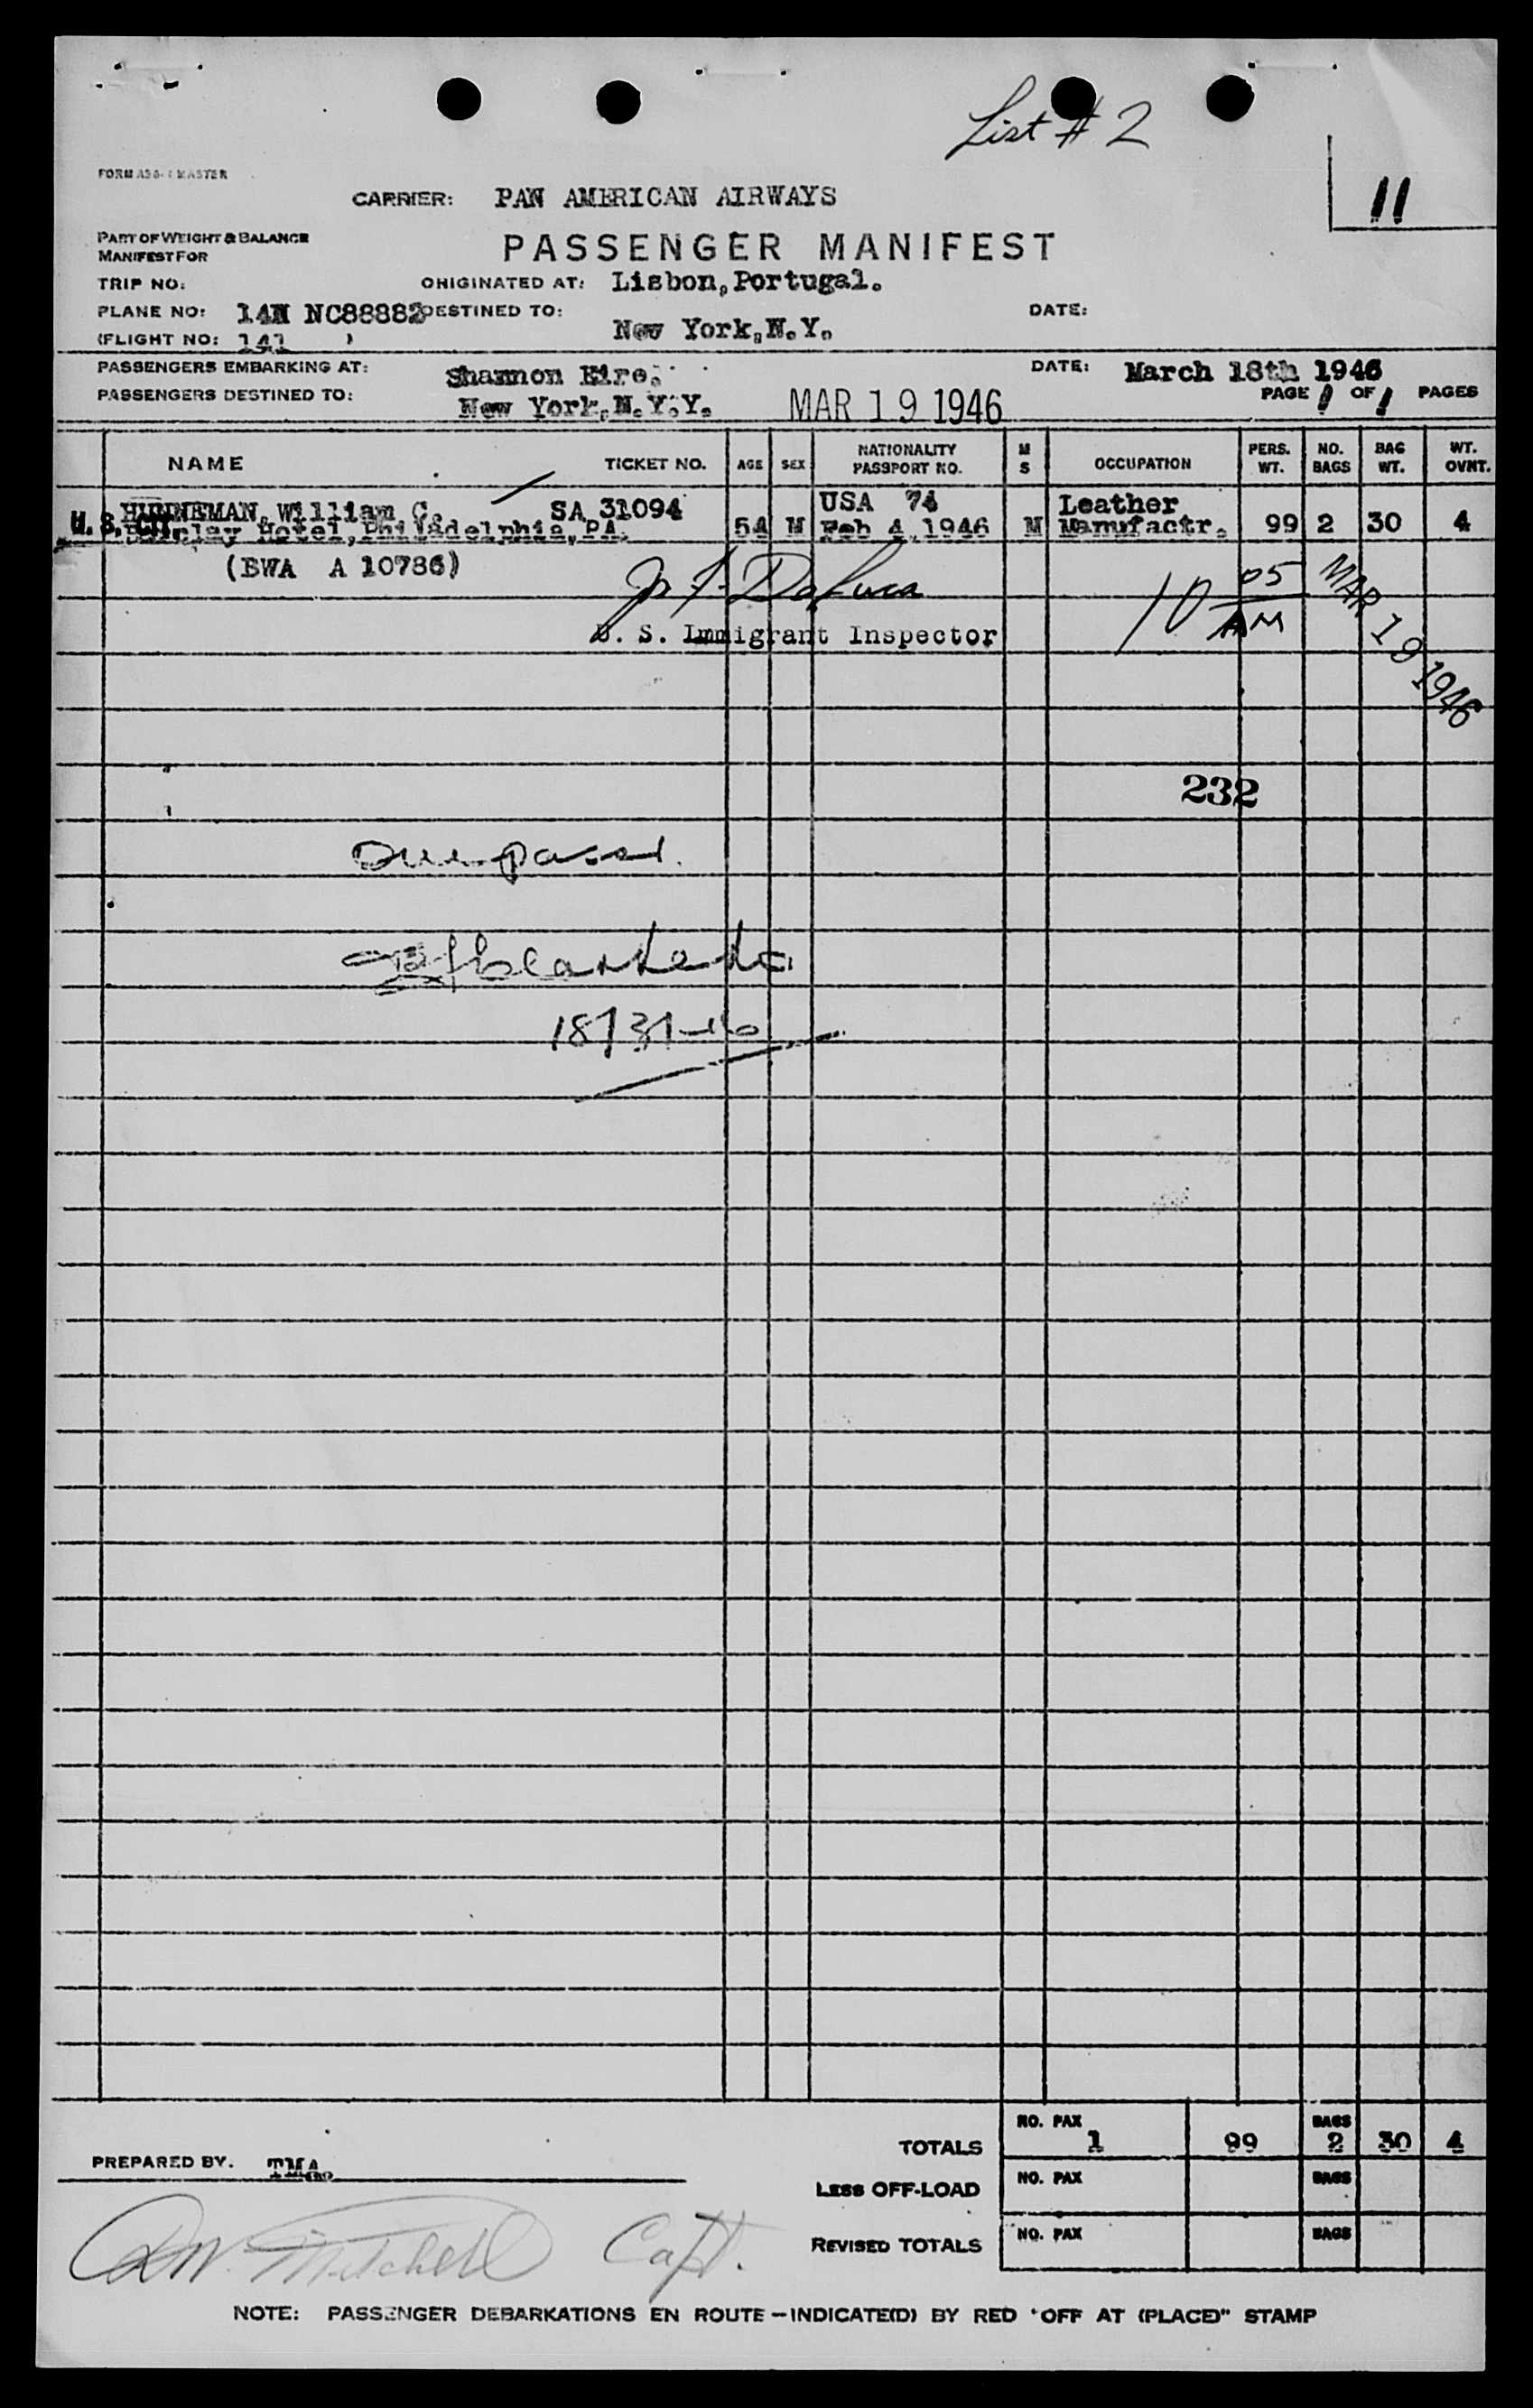 List # 2
11
CARRIER: PAN AMERICAN AIRWAYS
PART OF WEIGHT & BALANCE
MANIFEST FOR
PASSENGER MANIFEST
TRIP NO: ORIGINATED AT: Lisbon, Portugal.
PLANE NO: 14N NC88882 DESTINED TO: DATE:
New York, N.Y.
(FLIGHT NO: 141 )
PASSENGERS EMBARKING AT: Shannon Eire. DATE: March 18th 1946
PASSENGERS DESTINED TO: New York, N.Y.Y. MAR 19 1946 PAGE 1 OF 1 PAGES
NAME TICKET NO. AGE SEX NATIONALITY PASSPORT NO. M S OCCUPATION PERS. WT. NO. BAGS BAG WT. WT. OVNT.
HUNNEMAN, William C. SA 31094 USA 74 Leather
U. S. CIT. Hotel, Philadelphia, PA. 54 M Feb 4, 1946 M Manufactr. 99 2 30 4
(BWA A 10786)
10 05 AM
MAR 19 1946
U. S. Immigrant Inspector
232
One passl.
TOTALS NO. PAX 1 99 BAGS 2 30 4
PREPARED BY. TMA
LESS OFF-LOAD NO. PAX BAGS
REVISED TOTALS NO. PAX BAGS
Mitchell Capt.
NOTE: PASSENGER DEBARKATIONS EN ROUTE — INDICATE(D) BY RED "OFF AT (PLACE)" STAMP